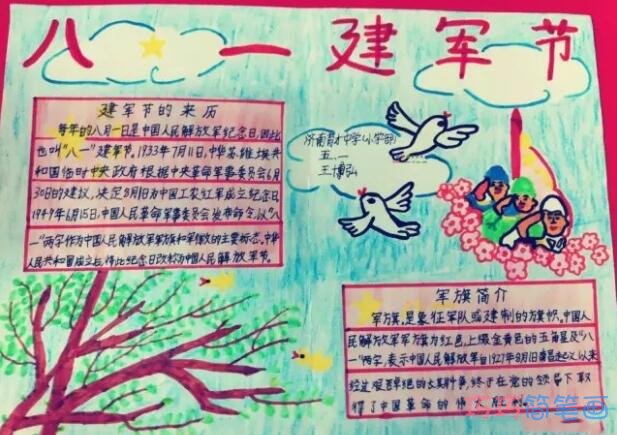 八一建军节
建军节的来历
每年的八月一日是中国人民解放军纪念日,因此
也叫"八一"建军节。1933年7月11日,中华苏维埃共
和国临时中央政府根据中央革命军事委员会6月
30日的建议,决定8月1日为中国工农红军成立纪念日
1949年6月15日,中国人民革命军事委员会发布命令,以"八
一"两字作为中国人民解放军军旗和军徽的主要标志。中华
人民共和国成立后,将此纪念日改称为中国人民解放军节。
济南育才中学(小学部)
五.一
王博弘
军旗简介
军旗,是象征军队或建制的旗帜。中国人
民解放军军旗为红色,上缀金黄色的五角星及"八
一"两字,表示中国人民解放军自1927年8月1日南昌起义以来
经过艰苦卓绝的长期斗争,终于在党的领导下取
得了中国革命的伟大胜利。
简笔画